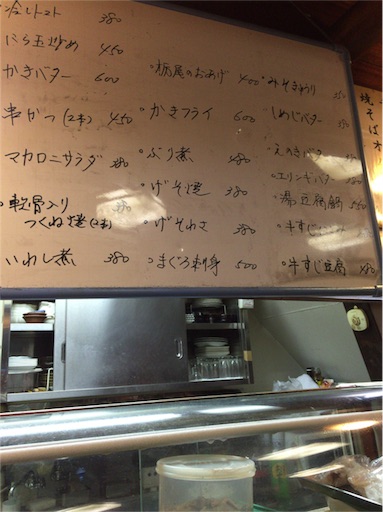 冷しトマト 380
にら玉炒め 450
かきバター 600
串かつ(2本) 450
マカロニサラダ 380
軟骨入り
つくね焼(2本)
いわし煮 380
栃尾のおあげ 400
かきフライ 600
ぶり煮 480
げそ焼 380
げそわさ 380
まぐろ刺身 500
みそきゅうり 350
しめじバター
えのきバター
エリンギバター
湯豆腐鍋 550
牛すじ
牛すじ豆腐 480
焼そば